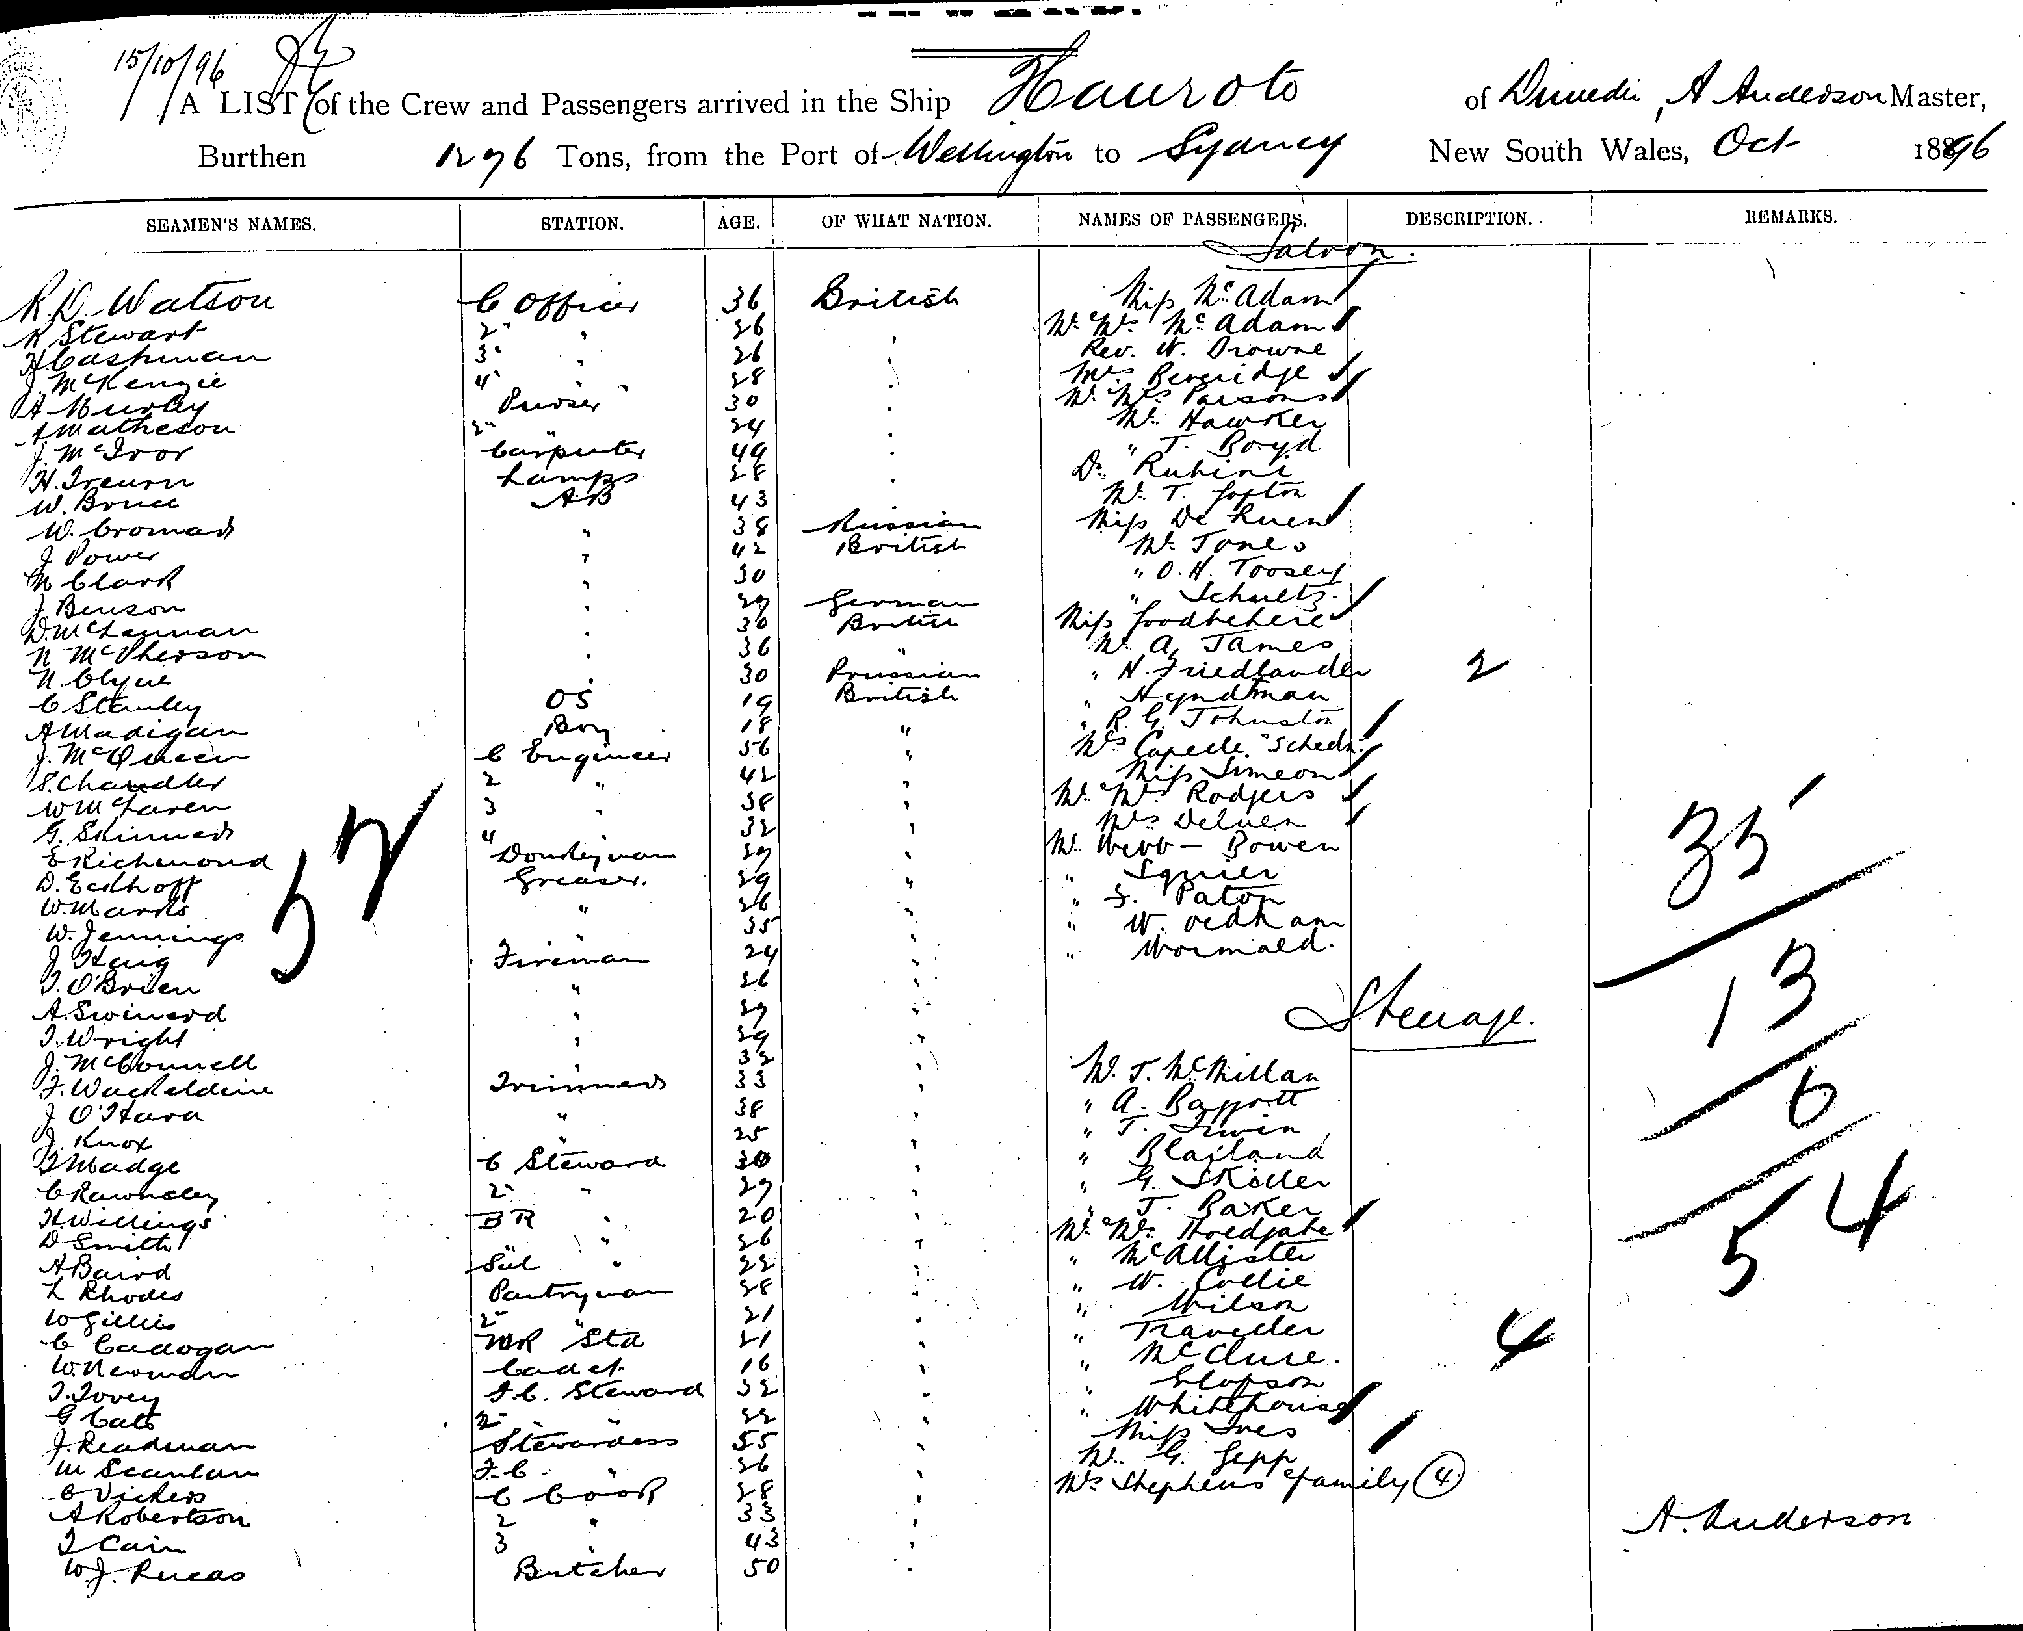 15/10/96
A LIST of the Crew and Passengers arrived in the Ship Hauroto of Dunedin, A Anderson Master,
Burthen 1276 Tons, from the Port of Wellington to Sydney New South Wales, Oct 1896
SEAMEN'S NAMES. STATION. AGE. OF WHAT NATION. NAMES OF PASSENGERS. DESCRIPTION. REMARKS.
Saloon.
R.D. Watson C Officer 36 British Miss McAdam
R Stewart 2" " 26 " Mr Mrs McAdam
H Cashman 3" " 26 " Rev. W. Browne
J McKenzie 4" " 28 " Mrs Beveridge
A Murley Purser 30 " Mr Mrs Parsons
A Matheson 2" " 24 " Mr Hawker
J. McIvor Carpenter 49 " " T. Boyd
H. Treurn Lamps 28 " Dr Rubini
W. Bruce AB 43 Mr T.
W. Cromads " 38 Russian Miss De Luen
J Power " 42 British Mr Jones
M Clark " 30 " O. H. Toosey
J. Benson " 29 German " Schultz.
D. McLennan " 30 British Miss Goodbehere
N McPherson " 36 " Mr A. James
N. Clyne " 30 Prussian " H. Friedlander 2
C Stanley OS 19 British " Hyndman
A Madigan Boy 18 " " R. G. Johnston
J. McQueen C Engineer 56 " Mrs Capelle
S. Chandler 2 " 42 " Miss Simeon
W McLaren 3 " 38 " Mr Mrs Rodgers
G. Skinner 4 " 32 " Mrs Deluen
E Richmond Donkeyman 29 " Mr Webb-Bowen 35
D. Eckhoff Greaser. 29 " " Squier
W. Marks " 26 " " J. Paton
52
W. Jennings " 35 " " W. Oldham
J Haig Fireman 24 " " Wormald.
T. O'Brien " 26 " 13
A. Swinerd " 29 " Steerage.
T. Wright " 29 "
J. McConnell " 32 " Mr. T. McMillan
F. Wackeldine Trimmers 33 " " A. Barrott
J O'Hara " 38 " " T. Irwin 6
J. Knox " 25 " " Blailand
T Madge C Steward 30 " " G. Skoller
C Rawnsley 2" " 29 " " T. Baker
H Willings BR " 20 " Mr Mrs Holdgate 54
D Smith " 26 " " McAllister
A Baird Sal " 22 " " W. Collie
L Rhodes Pantryman 28 " " Wilson
W Gillies 2" " 21 " " Traveller
C Cadogan MR Std 21 " " McClure. 4
W. Newman Cadet 16 "
T. Tovey F.C. Steward 32 " " Whitehouse
G Cato 2" " 22 " Miss Ives
J. Readman Stewardess 55 " Mr G. Gepp
M Scanlan F.C. " 26 " Mrs Stephens & family (4)
C Vickers C Cook 28 "
A Robertson 2 " 33 " A. Anderson
T Cain 3 " 43 "
W. J. Rucas Butcher 50 "